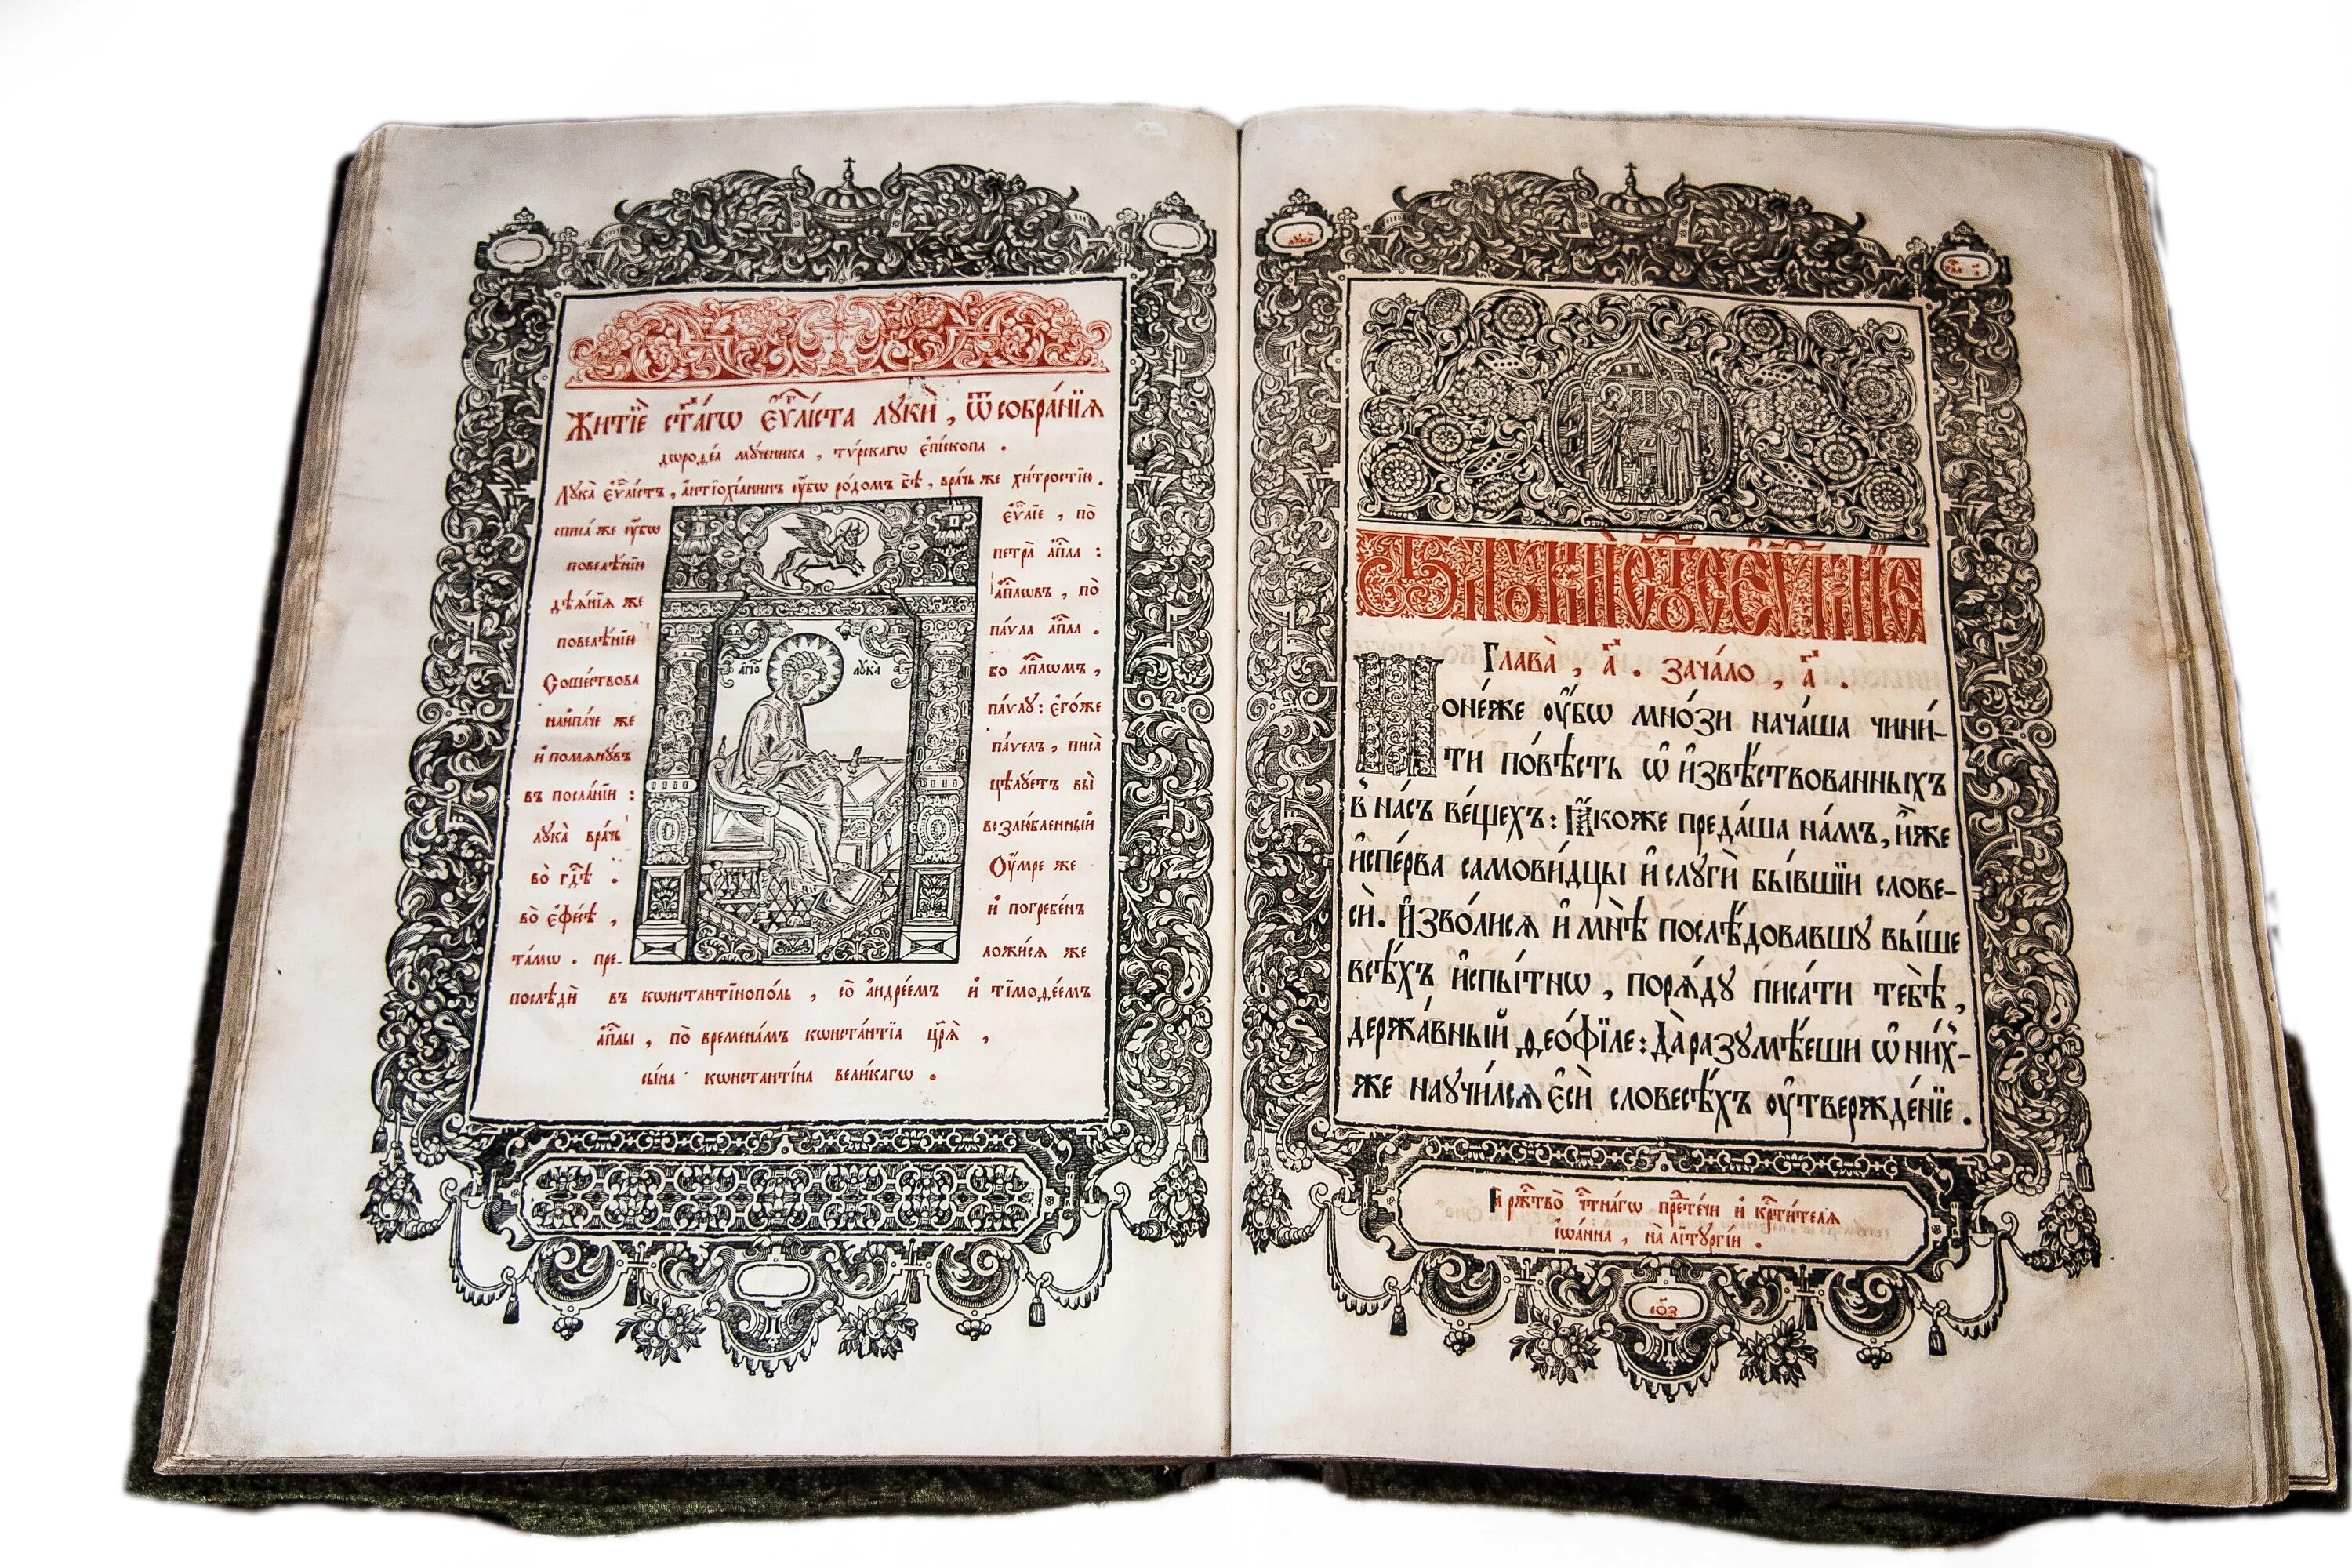 Житїѐ ст҃а́гѡ є҆ѵⷢ҇лі́ста лꙋкѝ, ѿ собра́нїѧ
дѡроѳе́а мꙋ́ченика, тѵ́рскагѡ є҆пі́скопа.
Лꙋка̀ є҆ѵⷢ҇лі́стъ, а҆нтїохі́анинъ ᲂу҆́бѡ ро́домъ бѣ̀, вра́чь же хи́тростїю.
списа́ же ᲂу҆́бѡ є҆ѵⷢ҇лїе, по̀
повелѣ́нїю петра̀ а҆пⷭ҇ла:
дѣѧ́нїѧ же а҆пⷭ҇лѡвъ, по̀
повелѣ́нїю па́ѵла а҆пⷭ҇ла.
Сошествова бо а҆пⷭ҇лѡмъ,
наипа́че же па́ѵлꙋ: є҆го́же
и҆ помѧнꙋ́въ па́ѵелъ, писа̀
въ посла́нїи: цѣлꙋ́етъ вы̀
лꙋка̀ вра́чь возлю́бленный
во̀ гдⷭ҇ѣ. Оу҆́мре же
во̀ є҆фе́сѣ, и҆ погребе́нъ
та́мѡ. пре- ложи́сѧ же
послѣдѝ въ кѡнстантїнопо́ль, со̀ а҆ндре́емъ и҆ тїмоѳе́емъ
а҆пⷭ҇лы, по̀ времена́мъ кѡнста́нтїа цр҃ѧ̀,
сы́на кѡнстанті́на вели́кагѡ.
а҆пⷭ҇о лꙋка̀
лꙋка̀
гла а҃
Ѿ лꙋкѝ ст҃о́е є҆ѵⷢ҇лїе
Глава̀, а҃. зача́ло, а҃.
Поне́же ᲂу҆́бѡ мно́зи нача́ша чини́-
ти по́вѣсть ѡ҆ и҆звѣ́ствованныхъ
в̾ на́съ ве́щехъ: ꙗ҆́коже преда́ша на́мъ, и҆̀же
и҆спе́рва самови́дцы и҆ слꙋгѝ бы́вшїи слове-
сѝ. И҆зво́лисѧ и҆ мнѣ̀ послѣ́довавшꙋ вы́ше
всѣ́хъ и҆спы́тнѡ, порѧ́дꙋ писа́ти тебѣ̀,
держа́вный ѳео́фїле: Да̀ разꙋмѣ́еши ѡ҆ ни́х-
же наꙋчи́лсѧ є҆сѝ словесѣ́хъ ᲂу҆твержде́нїе.
На̀ ржⷭ҇тво̀ чⷭ҇тна́гѡ прⷣте́чи и҆ крⷭ҇ти́телѧ
і҆ѡа́нна, на̀ лїтꙋргі́и.